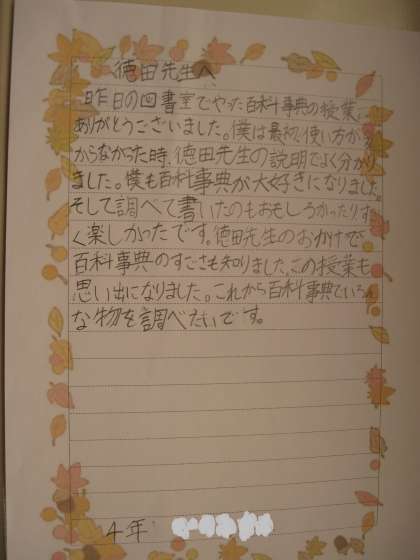 徳田先生へ
昨日の図書室でやった百科事典の授業、
ありがとうございました。僕は最初、使い方が分
からなかった時、徳田先生の説明でよく分かり
ました。僕も百科事典が大好きになりました。
そして調べて書いたのもおもしろかったりす
ごく楽しかったです。徳田先生のおかげで、
百科事典のすごさも知りました。この授業も
思い出になりました。これから百科事典でいろん
な物を調べたいです。
4年